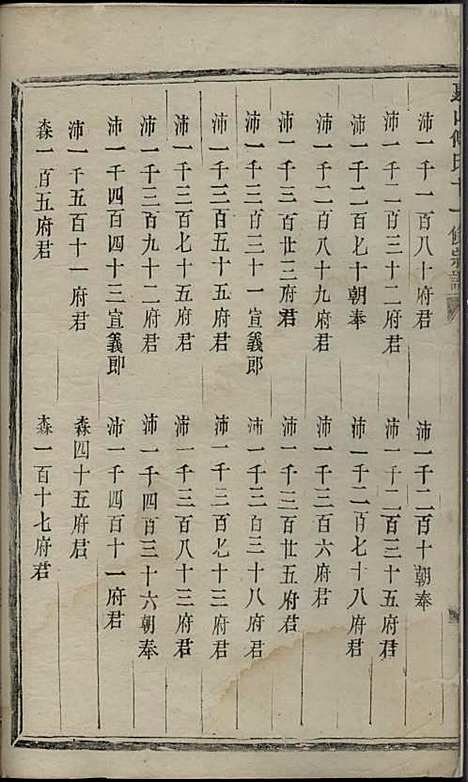 沛一千一百八十府君
沛一千二百十朝奉
沛一千二百三十二府君
沛一千二百三十五府君
沛一千二百七十朝奉
沛一千二百七十八府君
沛一千二百八十九府君
沛一千三百六府君
沛一千三百廿三府君
沛一千三百廿五府君
沛一千三百三十一宣義郎
沛一千三百三十八府君
沛一千三百五十五府君
沛一千三百七十三府君
沛一千三百七十五府君
沛一千三百八十三府君
沛一千三百九十二府君
沛一千四百三十六朝奉
沛一千四百四十三宣義郎
沛一千四百十一府君
沛一千五百十一府君
森四十五府君
森一百五府君
森一百十七府君